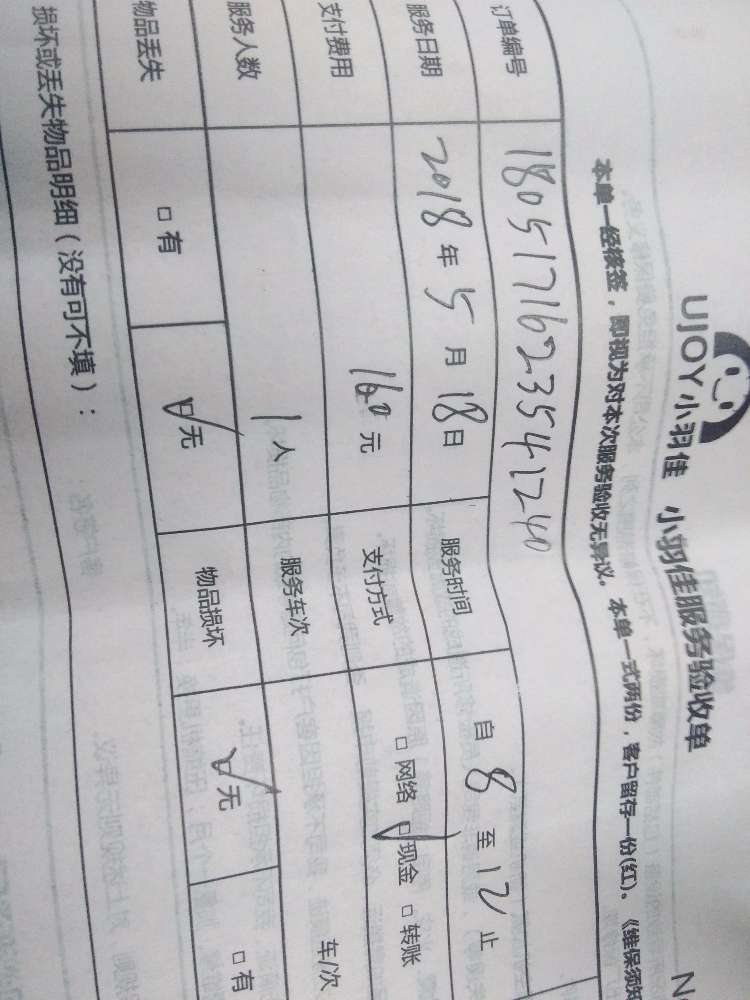 UJOY小羽佳 小羽佳服务验收单
本单一经签签，即视为对本次服务验收无异议。本单一式两份，客户留存一份(红)、《维保须知
订单编号 1805171623541240
服务日期 2018年5月18日 服务时间 自8至12止
支付费用 160元 支付方式 □网络 □现金 □转账
服务人数 1人 服务车次 车/次
物品丢失 □有 □无 物品损坏 □无 □有
损坏或丢失物品明细（没有可不填）：